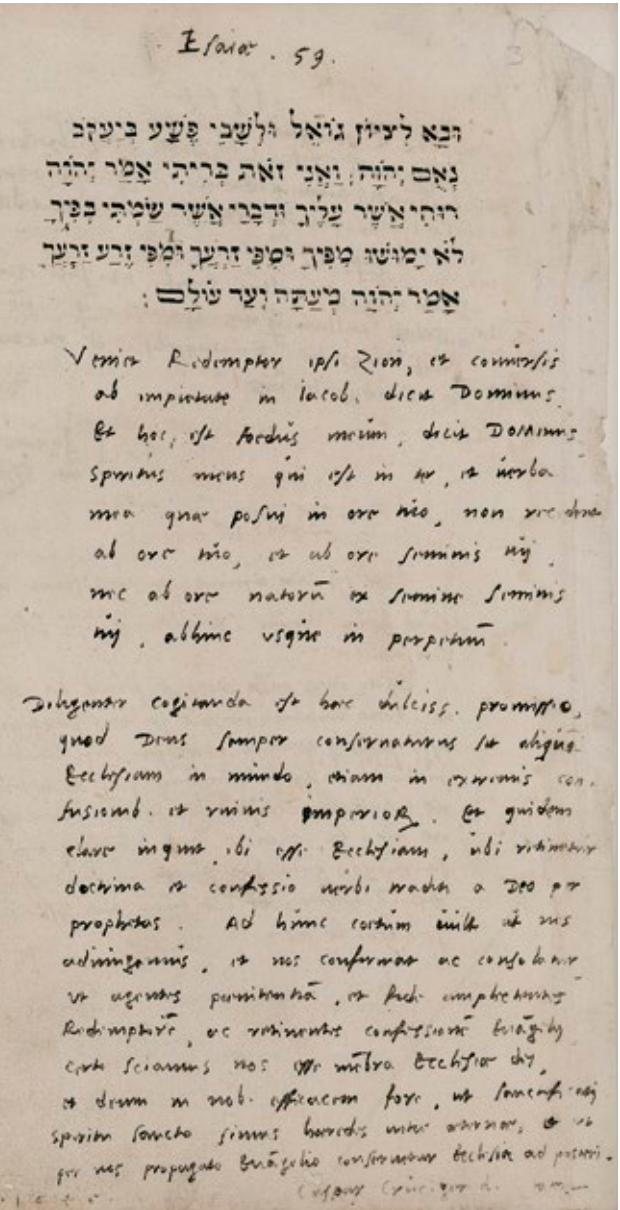 Esaiæ . 59 .
וּבָא לְצִיּוֹן גּוֹאֵל וּלְשָׁבֵי פֶשַׁע בְּיַעֲקֹב
נְאֻם יְהוָה׃ וַאֲנִי זֹאת בְּרִיתִי אָמַר יְהוָה
רוּחִי אֲשֶׁר עָלֶיךָ וּדְבָרַי אֲשֶׁר שַׂמְתִּי בְּפִיךָ
לֹא יָמוּשׁוּ מִפִּיךָ וּמִפִּי זַרְעֲךָ וּמִפִּי זֶרַע זַרְעֲךָ
אָמַר יְהוָה מֵעַתָּה וְעַד עוֹלָם׃
Veniet Redemptor ipsi Zion, et conuersis
ab impietate in Iacob. dicit Dominus.
Et hoc, est foedus meum, dicit Dominus
Spiritus meus qui est in te, et uerba
mea quæ posui in ore tuo, non recedent
ab ore tuo, et ab ore seminis tui,
nec ab ore natorū ex semine seminis
tui, abhinc vsque in perpetuū.
Diligenter cogitanda est hæc dulciss. promissio,
quod Deus semper conseruaturus sit aliquā
Ecclesiam in mundo, etiam in extremis con-
fusionib. et ruinis imperioꝝ. Et quidem
clare inquit, ibi esse Ecclesiam, ubi retinetur
doctrina et confessio uerbi traditi a Deo per
prophetas. Ad hunc coetum uult ut nos
adiungamus, et nos confirmat ac consolatur
vt agentes poenitentiā, et fide amplectentes
Redemptorē, ac retinentes confessionē Euāgelij
certo sciamus nos esse mēbra Ecclesiæ dei,
et deum in nob. efficacem fore, ut sanctificati
spiritu sancto simus hæredes uitæ æternæ, et ut
per nos propagato Euāgelio conseruetur Ecclesia ad posteri-
Caspar Creuziger